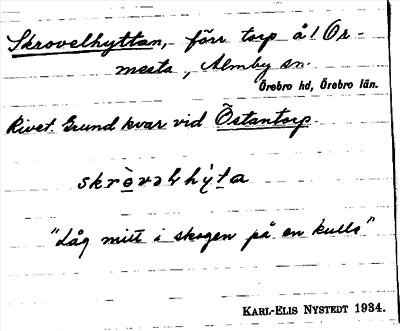 Skrovelhyttan, förr torp å! Or-
mesta, Almby sn.
Örebro hd, Örebro län.
Rivet. Grund kvar vid Östantorp.
skrò̱vəlhỳt̲a
"Låg mitt i skogen på en kulle"
KARL-ELIS NYSTEDT 1934.